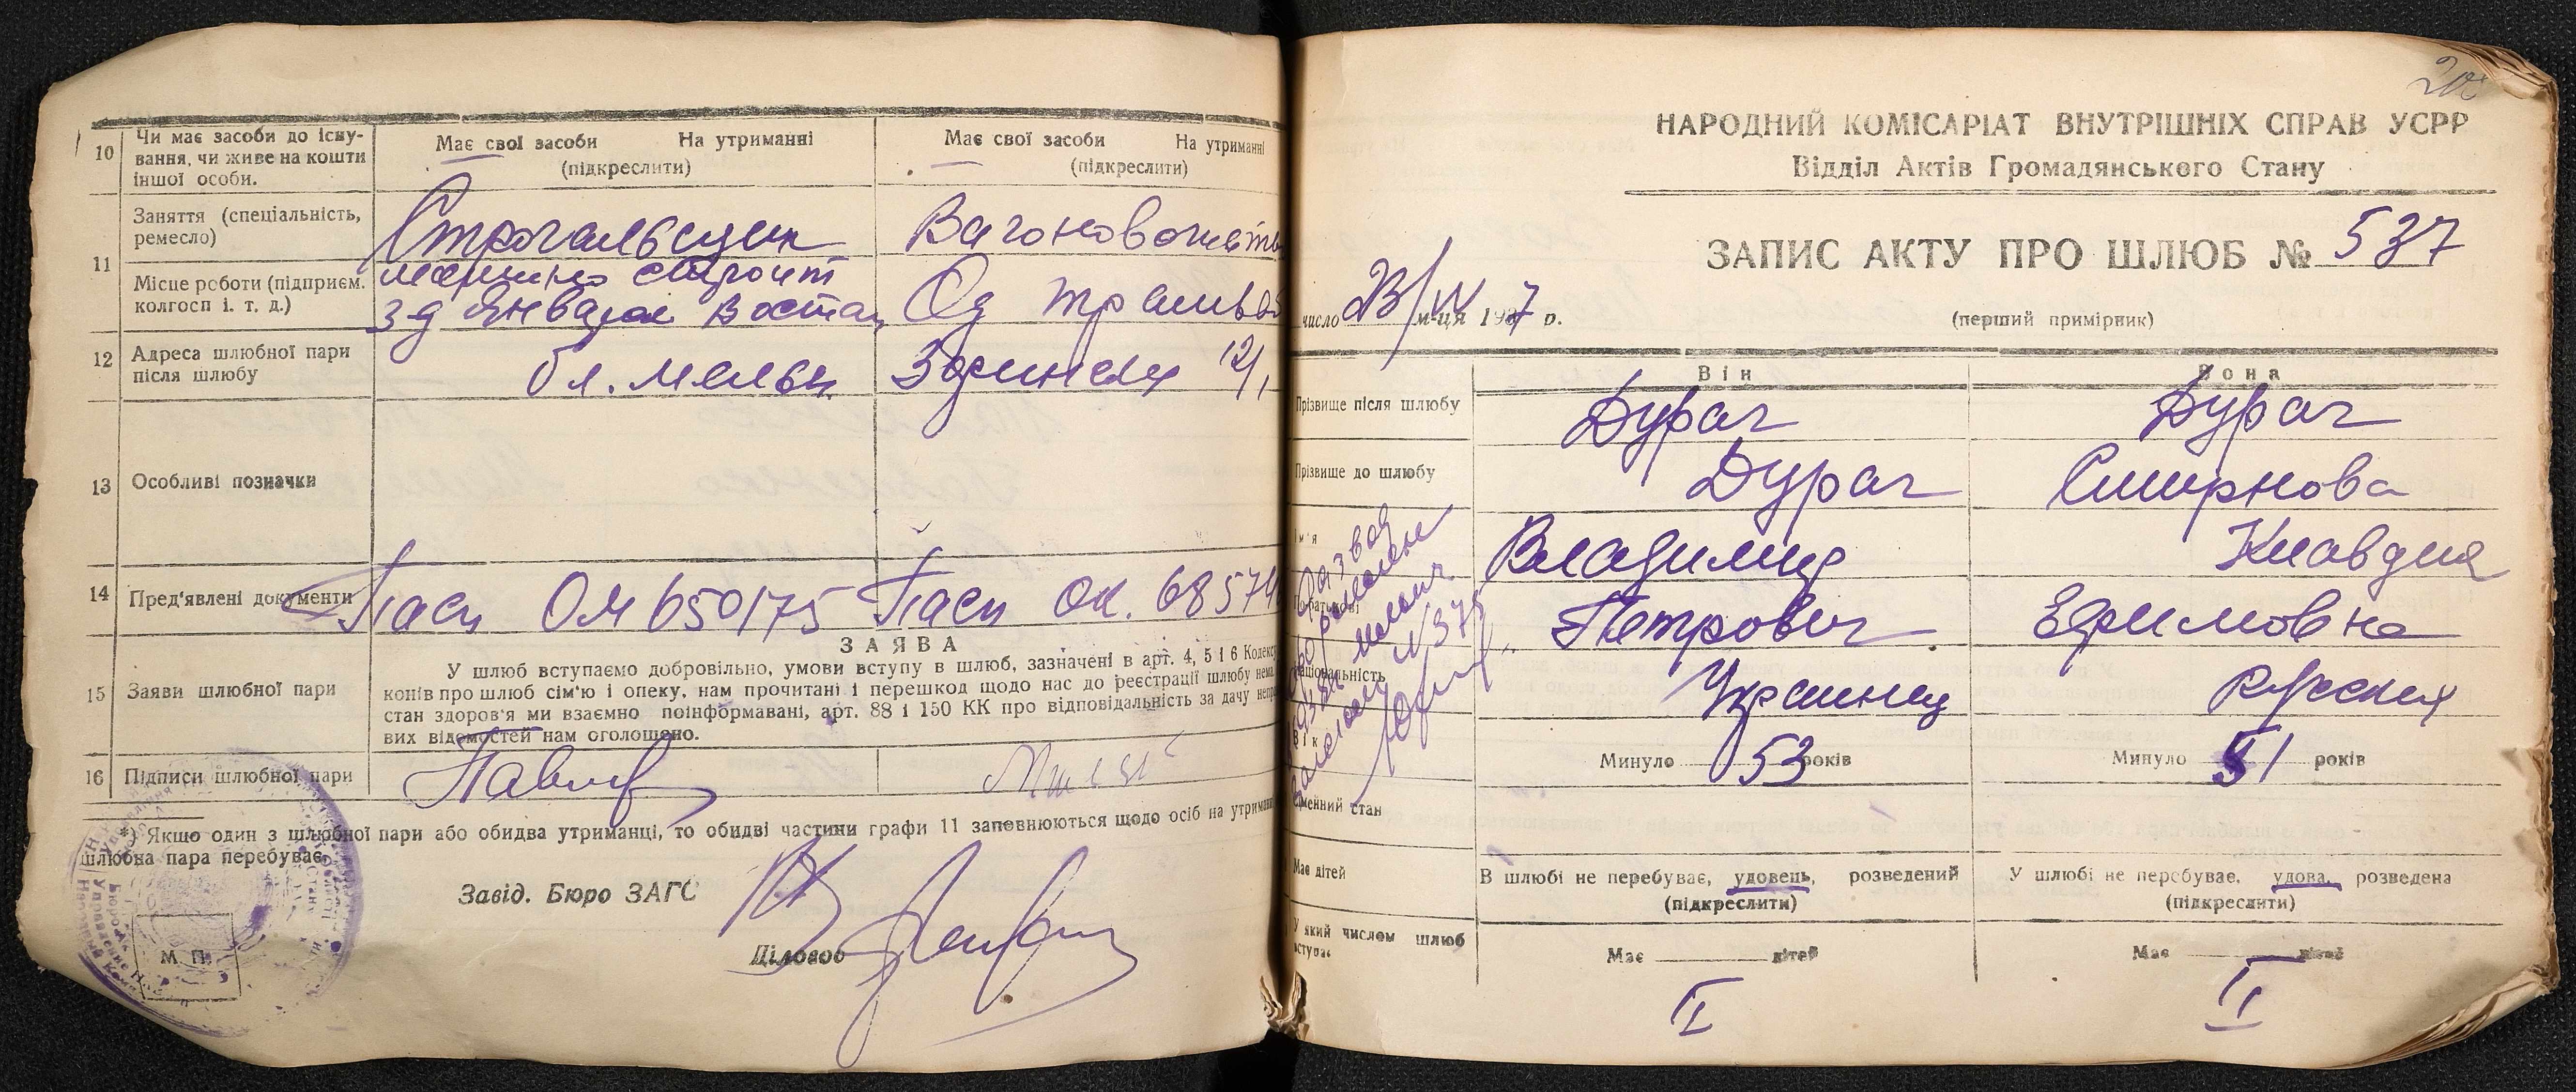 10 Чи має засоби до існу-
вання, чи живе на кошти
іншої особи.
Має свої засоби На утриманні
(підкреслити)
Має свої засоби На утриманні
(підкреслити)
11 Заняття (спеціальність,
ремесло)
Строгальщик
Вагоновожать
Місце роботи (підприєм.
колгосп і. т. д.)
з-д Январск Востан
Од трамвай
12 Адреса шлюбної пари
після шлюбу
бл. Мельн. 12/1
13 Особливі позначки
14 Пред'явлені документи
Пасп ОМ 650175 Пасп ОК. 68574
15 Заяви шлюбної пари
ЗАЯВА
У шлюб вступаємо добровільно, умови вступу в шлюб, зазначені в арт. 4, 5 і 6 Кодексу
конів про шлюб сім'ю і опеку, нам прочитані і перешкод щодо нас до реєстрації шлюбу нема
стан здоров'я ми взаємно поінформавані, арт. 88 і 150 КК про відповідальність за дачу непра
вих відомостей нам оголошено.
16 Підписи шлюбної пари
*) Якщо один з шлюбної пари або обидва утриманці, то обидві частини графи 11 заповнюються щодо осіб на утриманні
шлюбна пара перебуває.
Завід. Бюро ЗАГС
Діловод
М. П.
НАРОДНИЙ КОМІСАРІАТ ВНУТРІШНІХ СПРАВ УСРР
Відділ Актів Громадянського Стану
ЗАПИС АКТУ ПРО ШЛЮБ № 537
число 23/IV м-ця 1937 р.
(перший примірник)
Він Вона
Прізвище після шлюбу Дурач Дурач
Прізвище до шлюбу Дурач Смирнова
Ім'я Владимир Клавдия
По батькові Петрович Ефимовна
Національність Украинец Русская
Вік Минуло 53 років Минуло 51 років
Сімейний стан
В шлюбі не перебуває, удовець, розведений
(підкреслити)
У шлюбі не перебуває, удова, розведена
(підкреслити)
Має дітей
Має дітей Має дітей
У який числом шлюб
вступає
II II
Развод
N 375